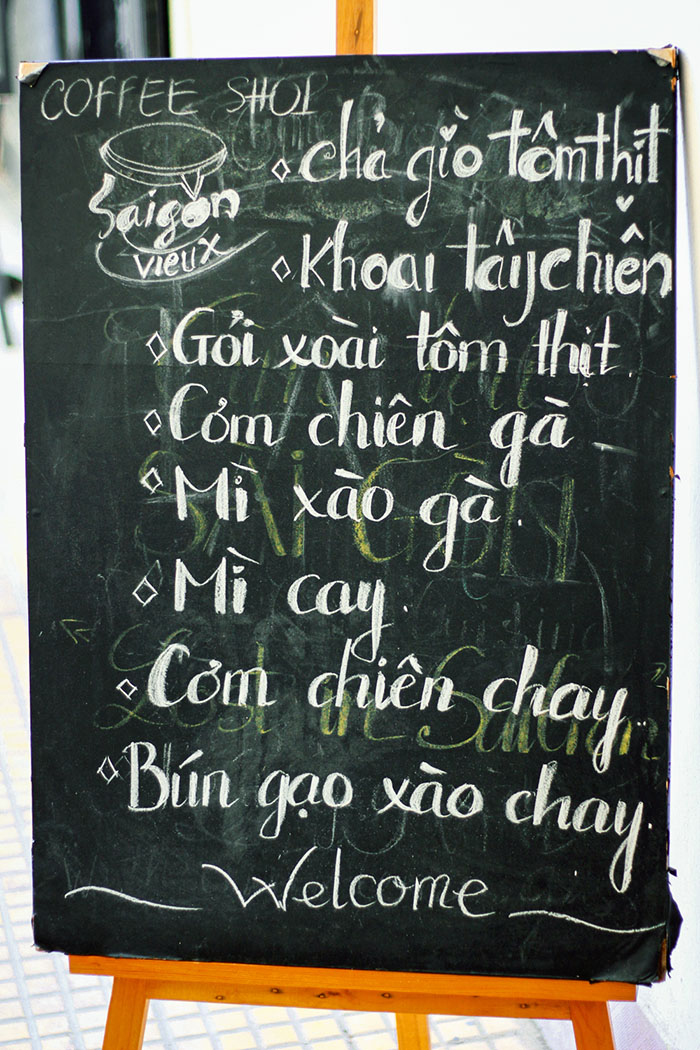 COFFEE SHOP
Saigòn
vieux
chả giò tôm thịt
Khoai tây chiên
Gỏi xoài tôm thịt.
Cơm chiên gà
Mì xào gà.
Mì cay.
Cơm chiên chay.
Bún gạo xào chay.
Welcome
SÀI GÒN
Lost in Saigon